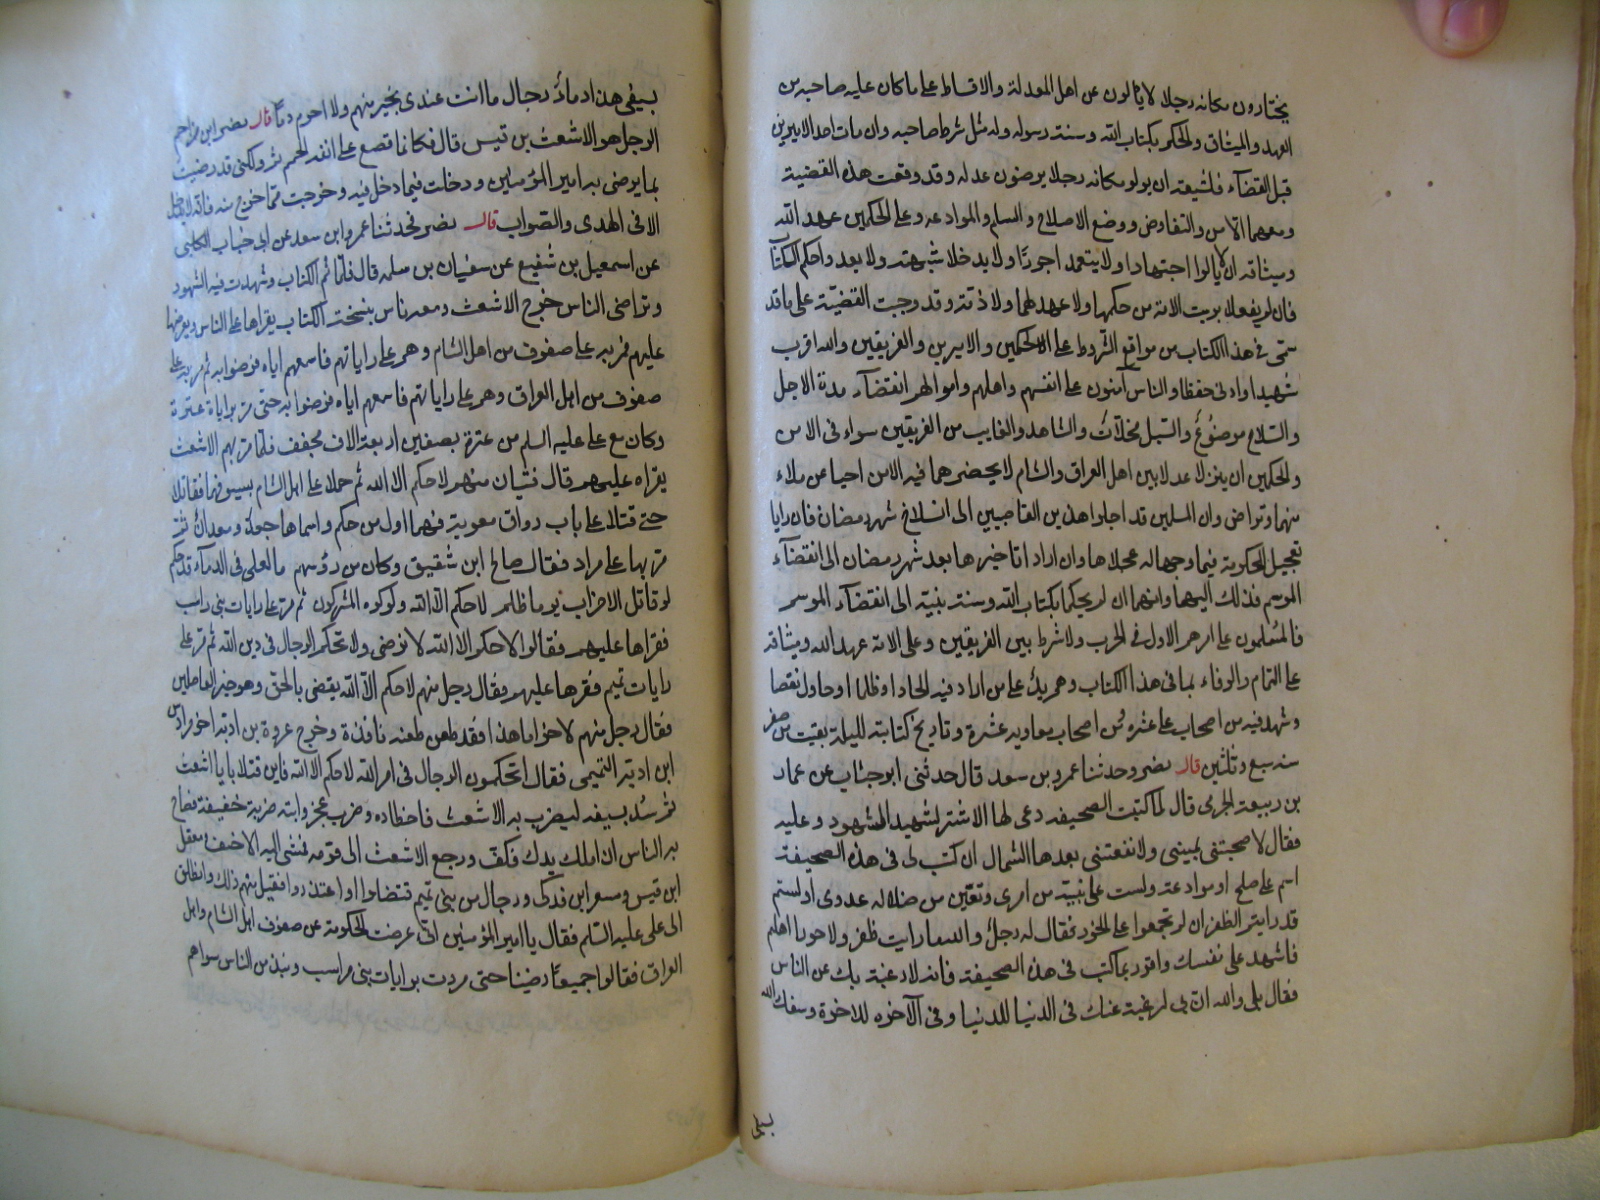 يختارون مكانه رجلا لا يالون عن اهل المعدلة والاقساط على ما كان عليه صاحبه من
العهد والميثاق والحكم بكتاب الله وسنة رسوله وله مثل شرط صاحبه وان مات احد الاميرين
قبل القضآء فلشيعته ان يولو مكانه رجلا يرضون عدله وقد وقعت هذه القضية
ومعهما الامن والتفاوض ووضع الاصلاح والسلم والموادعه وعلى الحكمين عهد الله
وميثاقه ان لا يالوا اجتهادا ولا يتعمدا جورًا ولا يدخلا شبهة ولا يعدوا حكم الكتاب
فان لم يفعلا برءت الامة من حكمهما ولا عهد لهما ولا ذمة وقد وجبت القضيّة على ما قد
سمّى في هذا الكتاب من مواقع الشروط على الحكمين والاميرين والفريقين والله اقرب
شهيدا وادنى حفظا والناس آمنون على انفسهم واهلهم واموالهم انقضآء مدة الاجل
والسّلاح موضوع والسّبل مخلّاة والشاهد والغايب من الفريقين سواء في الامن
وللحكمين ان ينزلا عدلا بين اهل العراق والشام لا يحضرهما فيه الامن احبا عن ملاء
منهما وتراضى وان المسلمين قد اجلوا هذين القاضيين الى انسلاخ شهر رمضان فان رايا
تعجيل الحكومة فيما وجها له عجلاها وان ارادا تاخيرها بعد شهر رمضان الى انقضآء
الموسم فذلك اليهما وانهما ان لم يحكما بكتاب الله وسنة نبيه الى انقضآء الموسم
فالمسلمون على امرهم الاول في الحرب ولا شرط بين الفريقين وعلى الامة عهد الله وميثاقه
على التمام والوفاء بما في هذا الكتاب وهم يدٌ على من اراد فيه الحادا وظلما او حاول نقضا
وشهد فيه من اصحاب على عشره ومن اصحاب معاويه عشرة وتاريخ كتابته لليلة بقيت من صفر
سنه سبع وثلثين قال نصر وحدثنا عمرو بن سعد قال حدثنى ابو جناب عن عمار
بن ربيعة الجرمى قال لما كتبت الصحيفه دعى لها الاشتر لتشهيد الشهود وعليه
فقال لا صحبتنى يمينى ولا نفعتنى بعدها الشمال ان كتب لى في هذه الصحيفة
اسم على صلح او موادعة ولست على بينة من امرى ويقين من ضلاله عدوى اولستم
قد رايتم الظفر ان لم تجمعوا على الخور فقال له رجل والله ما رايت ظفرا ولا خورا اهلم
فاشهد على نفسك واقرر بما كتب في هذه الصحيفة فانه لا رغبة بك عن الناس
فقال بلى والله ان بى لرغبة عنك في الدنيا للدنيا وفى الآخره للاخرة وسفك الله
بسيفى
بسيفى هذا دمآء رجال ما انت عندى بخير منهم ولا احرم دمًا قال نصر ابن مزاحم
الرجل هو الاشعث بن قيس قال فكانما قصع على انفه الحمم ثم ولكنى قد رضيت
بما يرضى به امير المؤمنين ودخلت فيما دخل فيه وخرجت مما خرج منه فانه لا يدخل
الا في الهدى والصواب قال نصر فحدثنا عمرو ابن سعد عن ابى جناب الكلبى
عن اسمعيل بن شفيع عن سفيان بن سلمه قال فلمّا تم الكتاب وشهدت فيه الشهود
وتراضى الناس خرج الاشعث ومعه ناس بنسخة الكتاب يقراها على الناس ويعرضها
عليهم فمر به على صفوف من اهل الشام وهم على راياتهم فاسمعهم اياه فرضوا به ثم مر به على
صفوف من اهل العراق وهم على راياتهم فاسمعهم اياه فرضوا به حتى مر برايات عنزة
وكان مع على عليه السلم من عنزة بصفين اربعة الاف مجفف فلما مر بهم الاشعث
يقراه عليهم قال فتيان منهم لا حكم الا الله ثم حملا على اهل الشام بسيوفهما فقاتلا
حتى قتلا على باب رواق معوية فهما اول من حكم واسماهما جعد ومعدان ثم
مر بها على مراد فقال صالح ابن شقيق وكان من رؤسهم ما لعلى في الدمآء قد حكم
لو قاتل الاحزاب يوما ظلم لا حكم الا الله ولو كره المشركون ثم مر على رايات بنى راسب
فقراها عليهم فقالوا لا حكم الا الله لا نرضى ولا نحكم الرجال في دين الله ثم مر على
رايات تميم فقرها عليهم فقال رجل منهم لا حكم الا الله يقضى بالحق وهو خير الفاصلين
فقال رجل منهم لاخر اما هذا فقد طعن طعنه نافذة وخرج عروة بن ادية اخو مرداس
ابن ادية التميمى فقال اتحكمون الرجال في امر الله لا حكم الا الله فاين قتلانا يا اشعث
ثم شد بسيفه ليضرب به الاشعث فاخطاه وضرب عجز دابته ضربة خفيفة فصاح
به الناس ان املك يدك فكف ورجع الاشعث الى قومه فمشى اليه الاحنف ومعقل
ابن قيس ومسعر ابن فدكى ورجال من بنى تميم فتنصلوا واعتذروا فقبل منهم ذلك وانطلق
الى على عليه السّلم فقال يا امير المؤمنين انّى عرضت الحكومة عن صفوف اهل الشام واهل
العراق فقالوا جميعًا رضينا حتى مررت برايات بنى راسب ونبذ من الناس سواهم